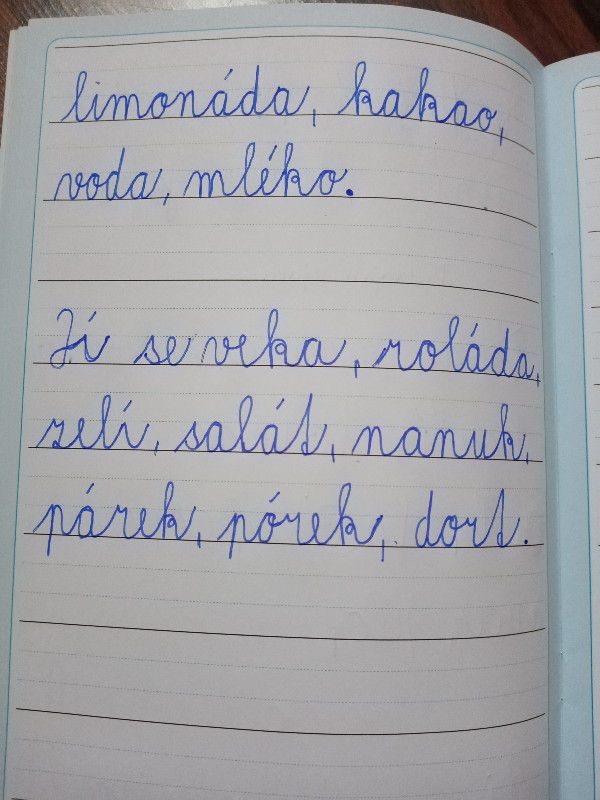 limonáda, kakao,
voda, mléko.
Jí se veka, roláda,
zelí, salát, nanuk,
párek, pórek, dort.